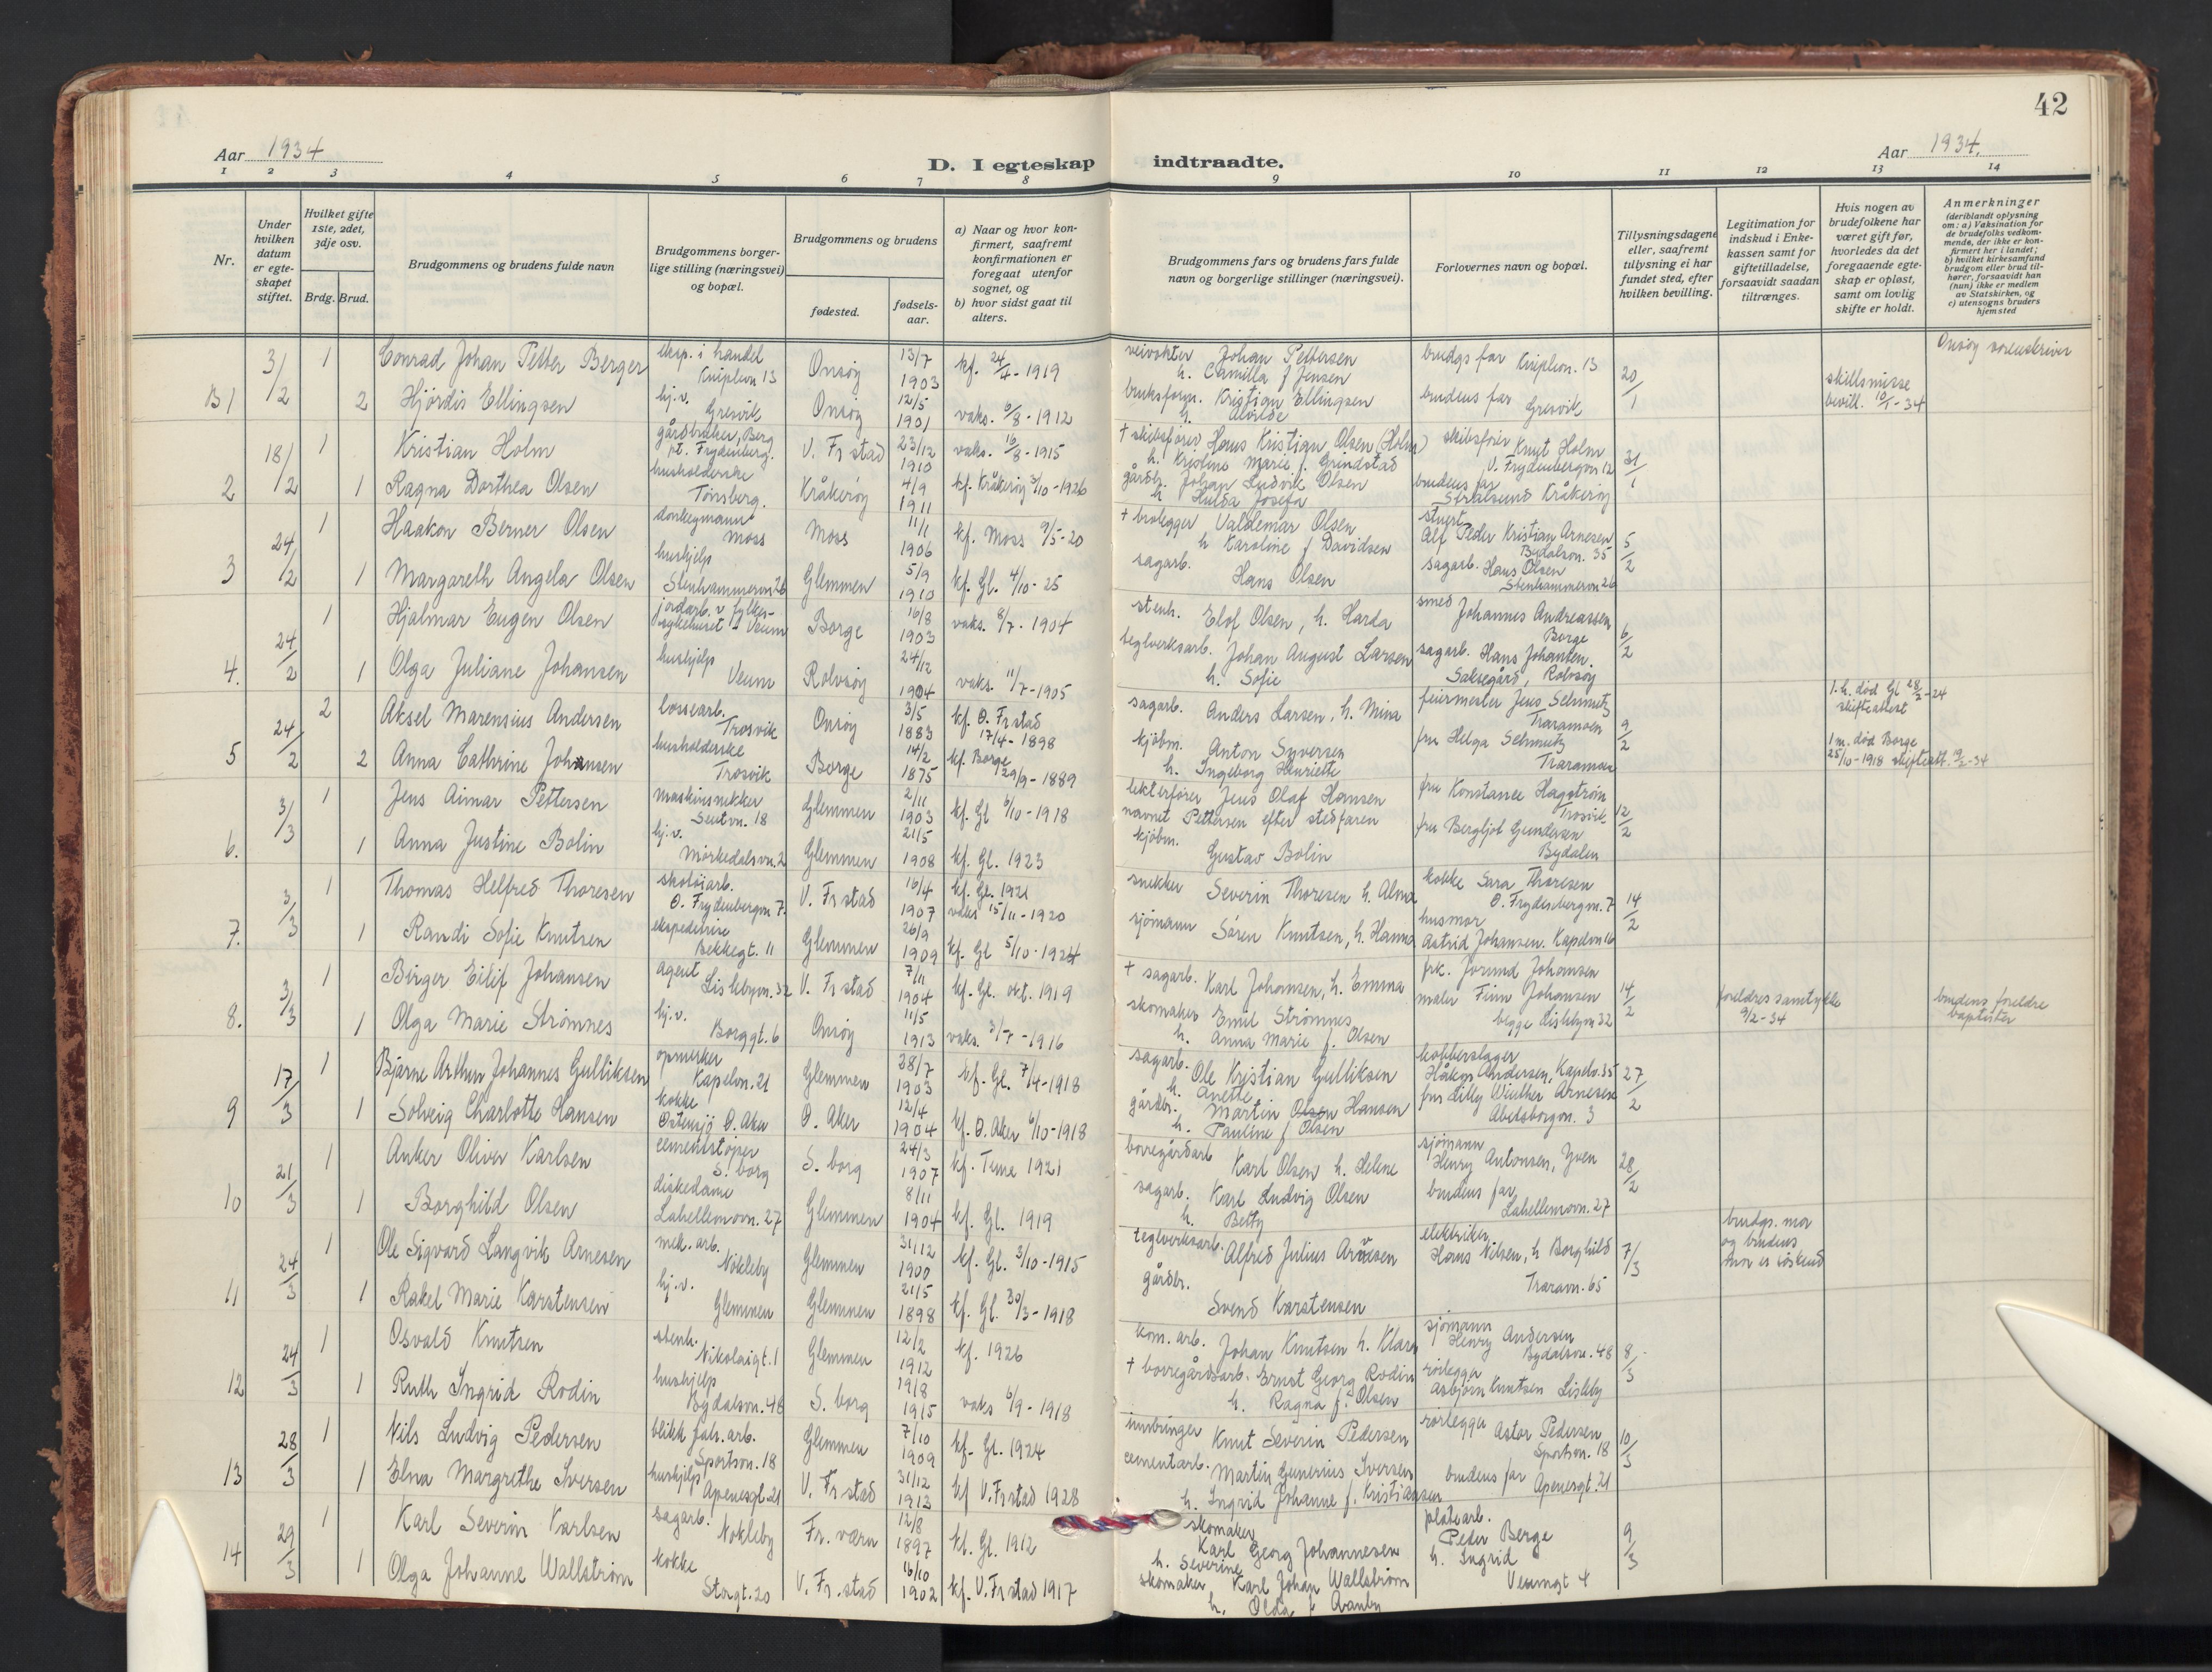 42
Aar 1934
D. I egteskap indtraadte.
Aar 1934.
1 2 3 4 5 6 7 8 9 10 11 12 13 14
Nr.
Under hvilken datum er egteskapet stiftet.
Hvilket gifte 1ste, 2det, 3dje osv.
Brdg. Brud.
Brudgommens og brudens fulde navn
Brudgommens borgerlige stilling (næringsvei) og bopæl.
Brudgommens og brudens
fødested.
fødsels-aar.
a) Naar og hvor konfirmert, saafremt konfirmationen er foregaat utenfor sognet, og
b) hvor sidst gaat til alters.
Brudgommens fars og brudens fars fulde navn og borgerlige stillinger (næringsvei).
Forlovernes navn og bopæl.
Tillysningsdagene eller, saafremt tillysning ei har fundet sted, efter hvilken bevilling.
Legitimation for indskud i Enkekassen samt for giftetilladelse, forsaavidt saadan tiltrænges.
Hvis nogen av brudefolkene har været gift før, hvorledes da det foregaaende egteskap er opløst, samt om lovlig skifte er holdt.
Anmerkninger (deriblandt oplysning om: a) Vaksination for de brudefolks vedkommende, der ikke er konfirmert her i landet; b) hvilket kirkesamfund brudgom eller brud tilhører, forsaavidt han (hun) ikke er medlem av Statskirken, og c) utensogns bruders hjemsted
3/2 1 Conrad Johan Petter Berger eksp. i handel Knipleon 13 Onsøy 13/7 1903 kf. 24/4 - 1919 veivokter Johan Pettersen h. Camilla f Jensen brudgs far Knipleon. 13 20/1 Onsøy sorenskriver
B1 2 Hjördis Ellingsen hj.v. Gresvik Onsøy 12/5 1901 vaks. 6/8 - 1912 bruksform. Kristian Ellingsen h. Alvilde brudens far Gresvik skillsmisse bevill. 10/1 - 34
18/2 1 Kristian Holm gårdbruker, Berg pt. Frydenberg. V. Fr stad 23/12 1910 vaks. 16/8 - 1915 † skibsfører Hans Kristian Olsen (Holm) h. Kristine Marie f. Grindstad skibsfører Knut Holm V. Frydenbergvn 12 31/1
2 1 Ragna Dorthea Olsen husholderske Tønsberg. Kråkerøy 4/9 1911 kf. Kråkerøy 3/10 - 1926 gårdbr. Johan Ludvik Olsen h Hulda Josefa brudens far Stralsund Kråkerøy
24/2 1 Haakon Berner Olsen donkeymann Moss Moss 11/1 1906 kf. Moss 9/5 - 20 † brolegger Valdemar Olsen h Karoline f Davidsen stuert Alf Peder Kristian Arnesen Bydalsvn. 35 5/2
3 1 Margareth Angela Olsen hushjelp Stenhammeren 26 Glemmen 5/9 1910 kf. Gl. 4/10 - 25 sagarb. Hans Olsen sagarb. Hans Olsen Stenhammeren 26
24/2 1 Hjalmar Eugen Olsen jordarb. v fylkessykehuset - Veum Borge 16/8 1903 vaks. 8/7 - 1904 stenh. Elof Olsen, h. Harda smed Johannes Andreassen Borge 6/2
4. 1 Olga Juliane Johansen hushjelp Veum Rolvsøy 24/12 1904 vaks. 11/7 - 1905 teglverksarb. Johan August Larsen h. Sofie sagarb. Hans Johansen. Saksegård, Rolvsøy
24/2 2 Aksel Marensius Andersen lossearb. Trosvik Onsøy 3/5 1883 kf. Ø. Fr stad 17/4 - 1898 sagarb. Anders Larsen, h. Mina feiermester Jens Schmutz Traramoen 9/2 1. h. død Gl 28/2 - 24 skifteattest
5 2 Anna Cathrine Johansen husholderske Trosvik Borge 14/2 1875 kf. Borge 29/9 - 1889 kjöbm. Anton Syversen h. Ingeborg Henriette fru Helga Schmutz Traramoen 1 m. død Borge 25/10 - 1918 skifteatt. 19/2 - 34
3/3 1 Jens Aimar Pettersen maskinsnekker Seutvn. 18 Glemmen 2/11 1903 kf. Gl 6/10 - 1918 lekterfører Jens Olaf Hansen navnet Pettersen efter stedfaren fru Konstance Hagstrøm Trosvik 12/2
6. 1 Anna Justine Bolin hj.v. Mørkedalsvn. 2 Glemmen 21/5 1908 kf. Gl. 1923 kjöbm. Gustav Bolin fru Bergljot Gundersen Bydalen
3/3 1 Thomas Helfred Thoresen skotøiarb. Ø. Frydenbergvn 7. V. Fr stad 16/4 1907 kf. Gl. 1921 vaks 15/11 - 1920 snekker Severin Thoresen h. Alma kokke Sara Thoresen Ø. Frydenbergvn. 7 14/2
7. 1 Randi Sofie Knutsen ekspeditrise Bekkegt. 11 Glemmen 26/9 1909 kf. Gl 5/10 - 1924 sjömann Sören Knutsen, h. Hanna husmor Astrid Johansen. Kapelvn 16
3/3 1 Birger Eilif Johansen agent Lislebyvn. 32 V. Fr stad 7/11 1904 kf. Gl. okt. 1919 † sagarb. Karl Johansen, h. Emma frk. Jorund Johansen 14/2 foreldres samtykke 9/2 - 34 brudens foreldre baptister
8. 1 Olga Marie Strømnes hj.v. Borggt. 6 Onsøy 11/5 1913 vaks. 3/7 - 1916 skomaker Emil Strømnes h. Anna Marie f. Olsen maler Finn Johansen begge Lislebyvn 32
17/3 1 Bjarne Arthur Johannes Gulliksen opmerker Kapelvn. 21 Glemmen 28/7 1903 kf. Gl. 7/4 - 1918 sagarb. Ole Kristian Gulliksen h. Anette kobberslager Håkon Andersen, Kapelv. 35 27/2
9 1 Solveig Charlotte Hansen kokke Østensjø Ø. Aker Ø. Aker 12/4 1904 kf. Ø. Aker 6/10 - 1918 gårdbr. Martin Olsen Hansen h. Pauline f Olsen fru Lilly Winther Arnesen Abelsborgvn. 3
21/3 1 Anker Oliver Karlsen cementstøper S. borg S. borg 24/3 1907 kf. Tune 1921 borregårdarb Karl Olsen h. Helene sjömann Henry Antonsen, Yven 28/2
10 1 Borghild Olsen diskedame Lahellemovn. 27 Glemmen 8/11 1904 kf. Gl. 1919 sagarb. Karl Ludvig Olsen h. Betty brudens far Lahellemovn. 27
24/3 1 Ole Sigvard Langvik Arnesen mek. arb. Nøkleby Glemmen 31/12 1900 kf. Gl. 3/10 - 1915 teglverksarb. Alfred Julius Arnesen elektriker Hans Nilsen, h Borghild Traravn. 65 7/3 brudgs. mor og brudens mor er søskend
11 1 Rakel Marie Karstensen hj.v. Glemmen Glemmen 21/5 1898 kf. Gl. 30/3 - 1918 gårdbr. Svend Karstensen
24/3 1 Osvald Knutsen stenh. Nikolaigt. 1 Glemmen 12/2 1912 kf. 1926 kom. arb. Johan Knutsen h. Klara sjömann Henry Andersen Bydalsvn. 48 8/3
12 1 Ruth Ingrid Rodin hushjelp Bydalsvn. 48 S. borg 19/8 1915 vaks 6/9 - 1918 † borregårdsarb. Ernst Georg Rodin h. Ragna f. Olsen rørlegger Asbjørn Knutsen Lisleby
28/3 1 Nils Ludvig Pedersen blikk fabr. arb. Sportsvn. 18 Glemmen 7/10 1909 kf. Gl. 1924 innbringer Knut Severin Pedersen rørlegger Astor Pedersen Sportsvn. 18 10/3
13 1 Elna Margrethe Iversen hushjelp Apenesgt. 21 V. Fr stad 31/12 1913 kf V. Fr stad 1928 cementarb. Martin Gunerius Iversen h. Ingrid Johanne f. Kristiansen brudens far Apenesgt. 21
29/3 1 Karl Severin Karlsen sagarb. Nøkleby Fr. værn 12/8 1897 kf. Gl. 1912 skomaker Karl Georg Johannesen h. Severine platearb. Peder Berge h. Ingrid Veumgt 4 9/3
14 1 Olga Johanne Wallstrøm kokke Storgt. 20 V. Fr. stad 16/10 1902 kf. V. Fr stad 1917 skomaker Karl Johan Wallstrøm h. Olda f